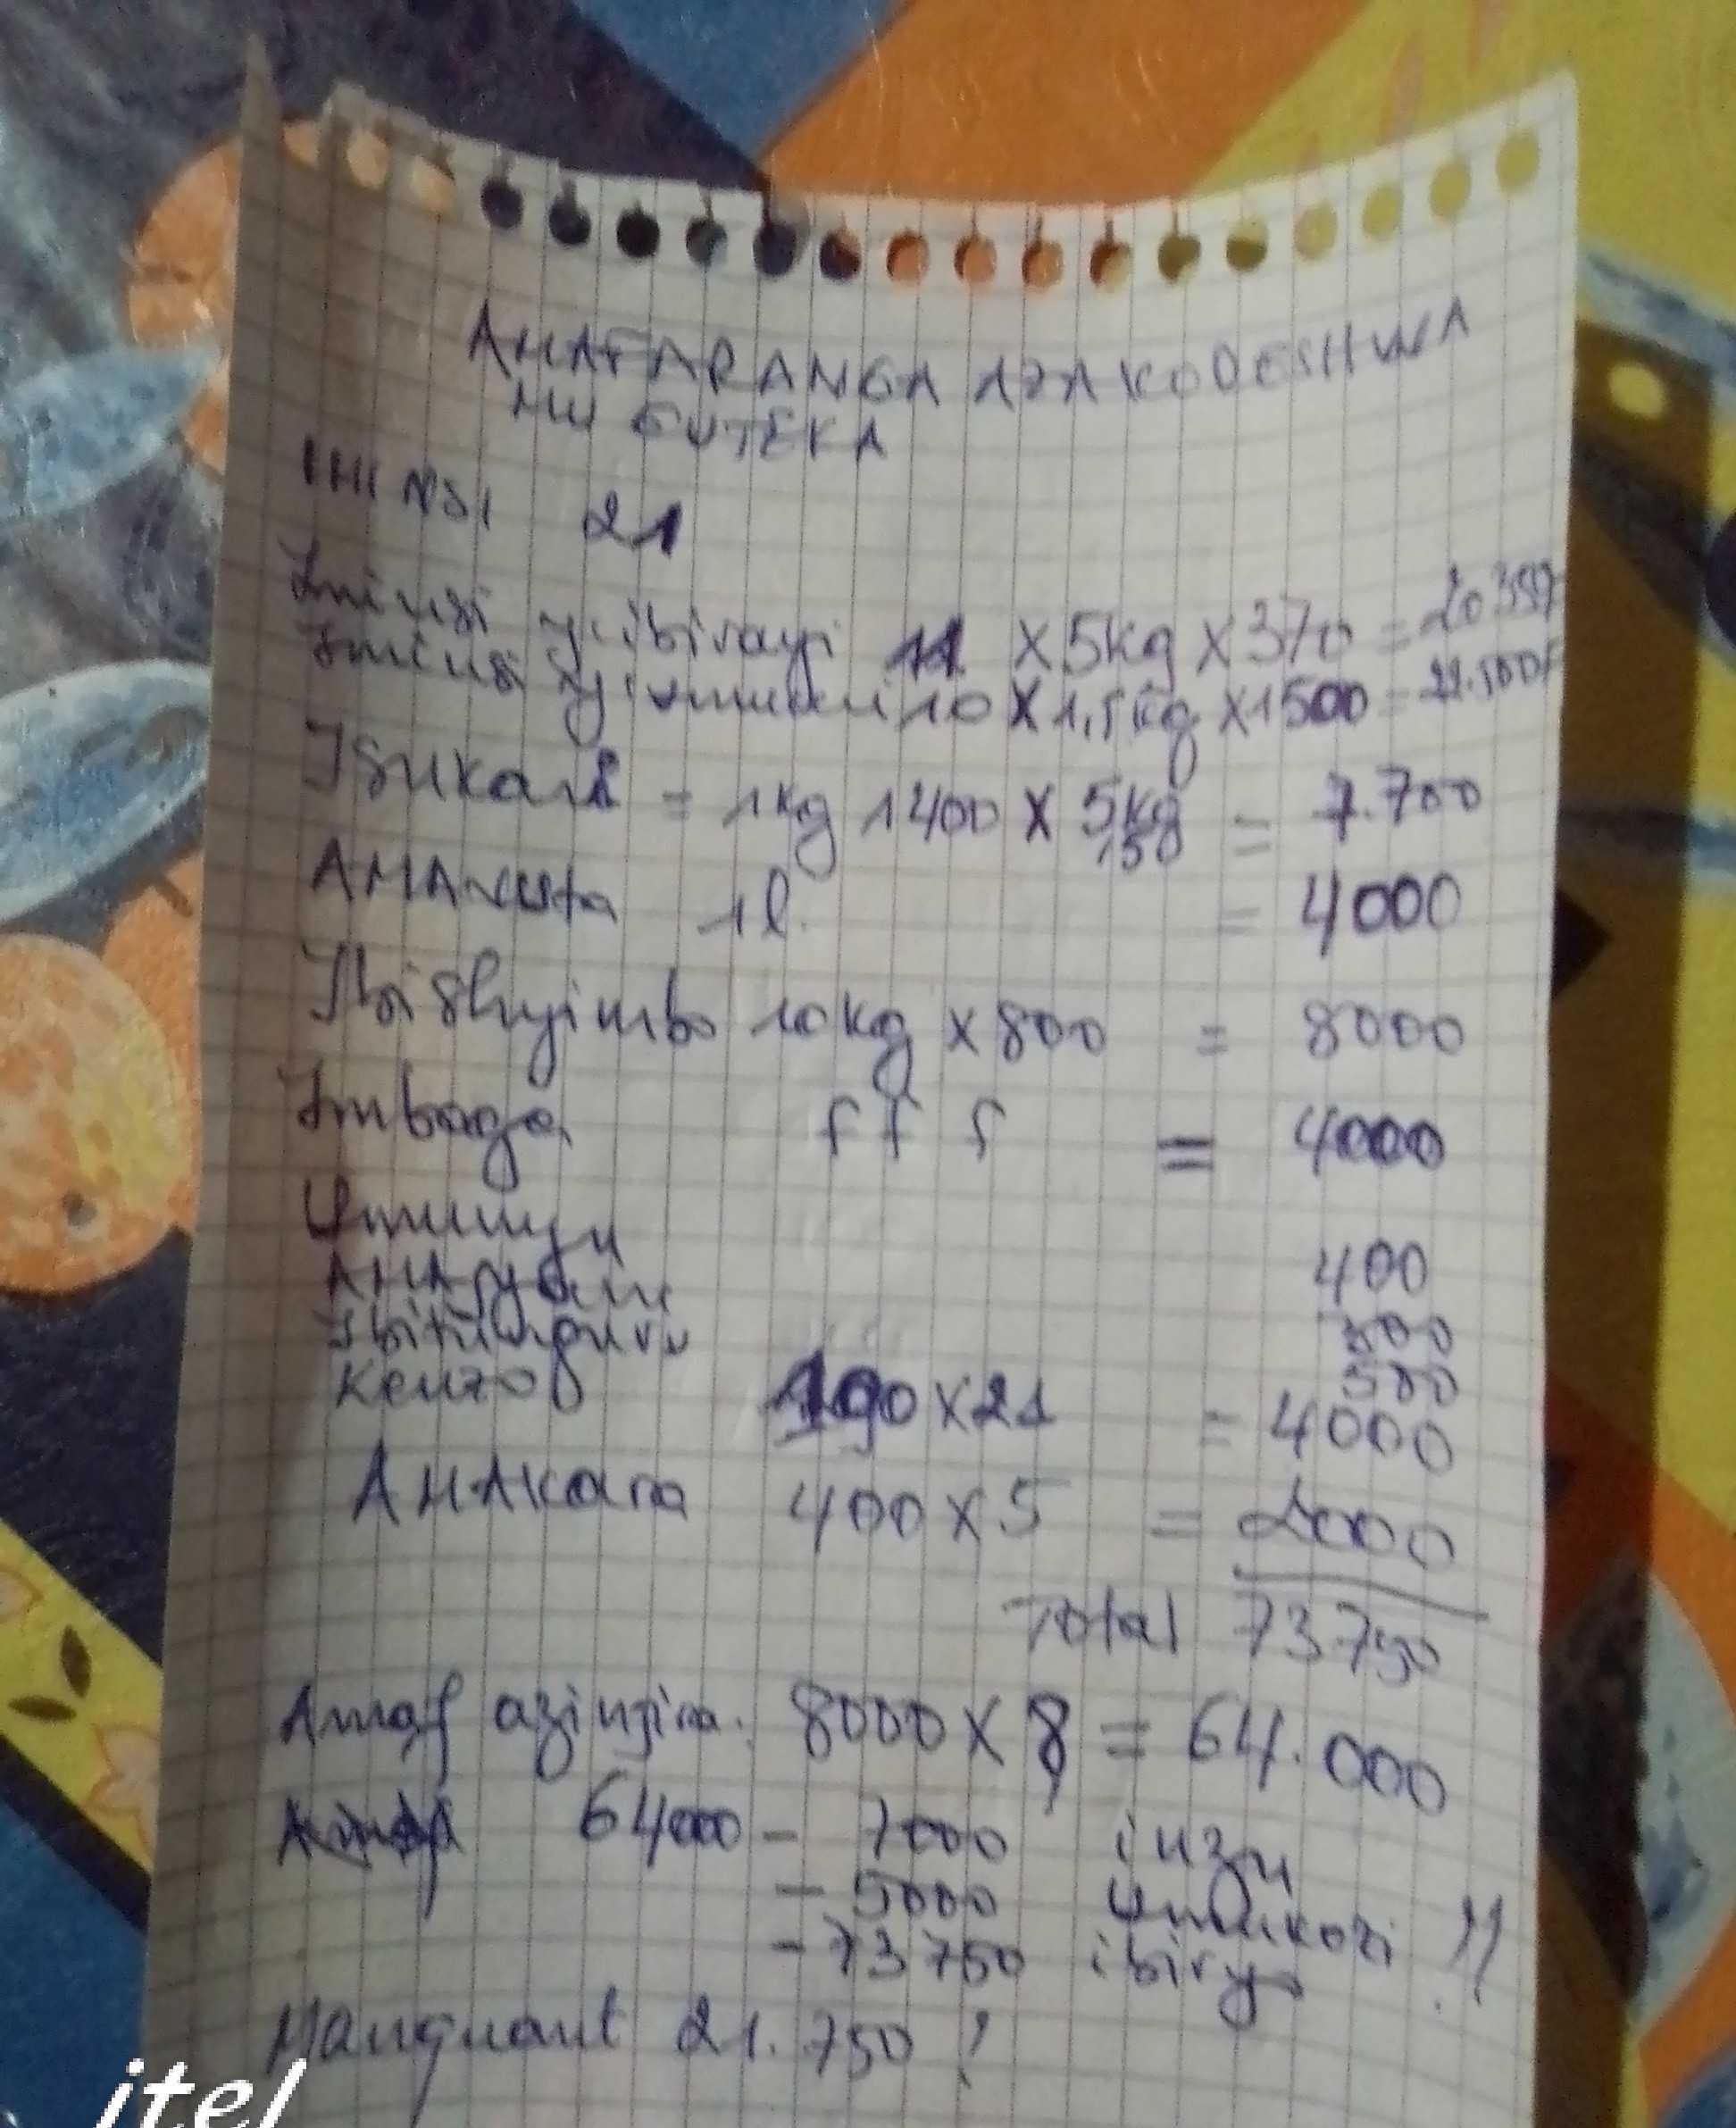 AMAFARANGA AZAKODESHWA
MU GUTEKA
IMINSI 21
Iminsi y'ibirayi 11 X 5kg X 370 = 20350F
Iminsi y'umuceri 10 X 1,5kg X 1500 = 22.500F
Isukari = 1kg 1400 X 5kg = 7.700
,50
AMAvuta 1l. = 4000
Ibishyimbo 10kg x 800 = 8000
Imboga f f f = 4000
Umunyu 400
AMA
Ibitunguru 300
500
Kenzo 190 X 21 = 4000
AMAkara 400 X 5 = 2000
Total 73750
Amaf azinjira. 8000 X 8 = 64.000
64000 - 7000 inzu
- 5000 umukozi !!
- 73750 ibiryo
Manquant 21.750 !
itel